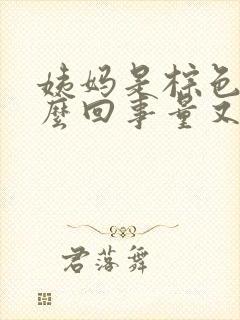 姨妈是棕色
麽回事量又
君落舞